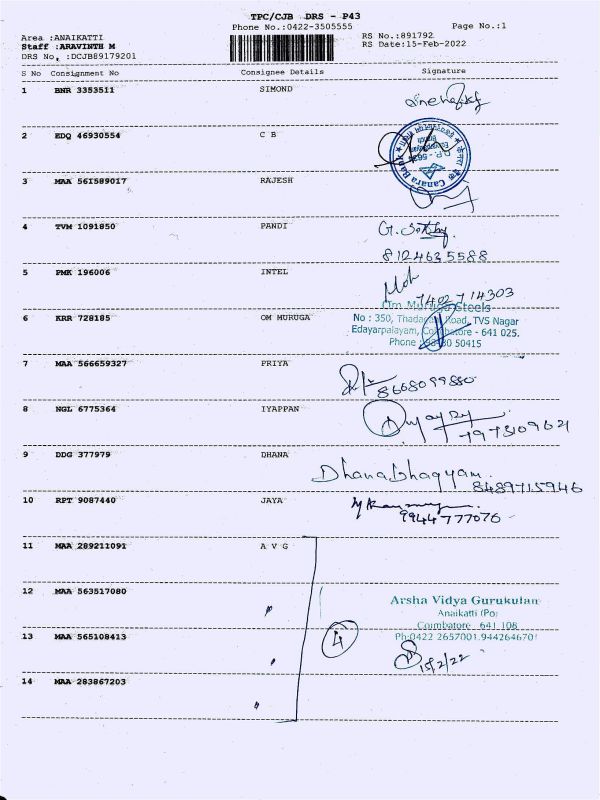 TPC/CJB DRS - P43
Phone No.:0422-3505555
Page No.:1
Area :ANAIKATTI
Staff :ARAVINTH M
DRS No. :DCJB89179201
RS No.:891792
RS Date:15-Feb-2022
S No Consignment No Consignee Details Signature
1 BNR 3353511 SIMOND
2 EDQ 46930554 C B
Canara Bank
3 MAA 561589017 RAJESH
4 TVM 1091850 PANDI
8124635588
5 PMK 196006 INTEL
7402714303
Om Muruga Steels
6 KRR 728185 OM MURUGA
No : 350, Thadagam Road, TVS Nagar
Edayarpalayam, Coimbatore - 641 025.
Phone : 98430 50415
7 MAA 566659327 PRIYA
8668099880
8 NGL 6775364 IYAPPAN
9 DDG 377979 DHANA
Dhanabhagyam.
8489715946
10 RPT 9087440 JAYA
9944777076
11 MAA 289211091 A V G
12 MAA 563517080 "
Arsha Vidya Gurukulan
Anaikatti (Po)
Coimbatore 641 108
13 MAA 565108413 "
4
Ph:0422 2657001.944264670
15/2/22
14 MAA 283867203 "